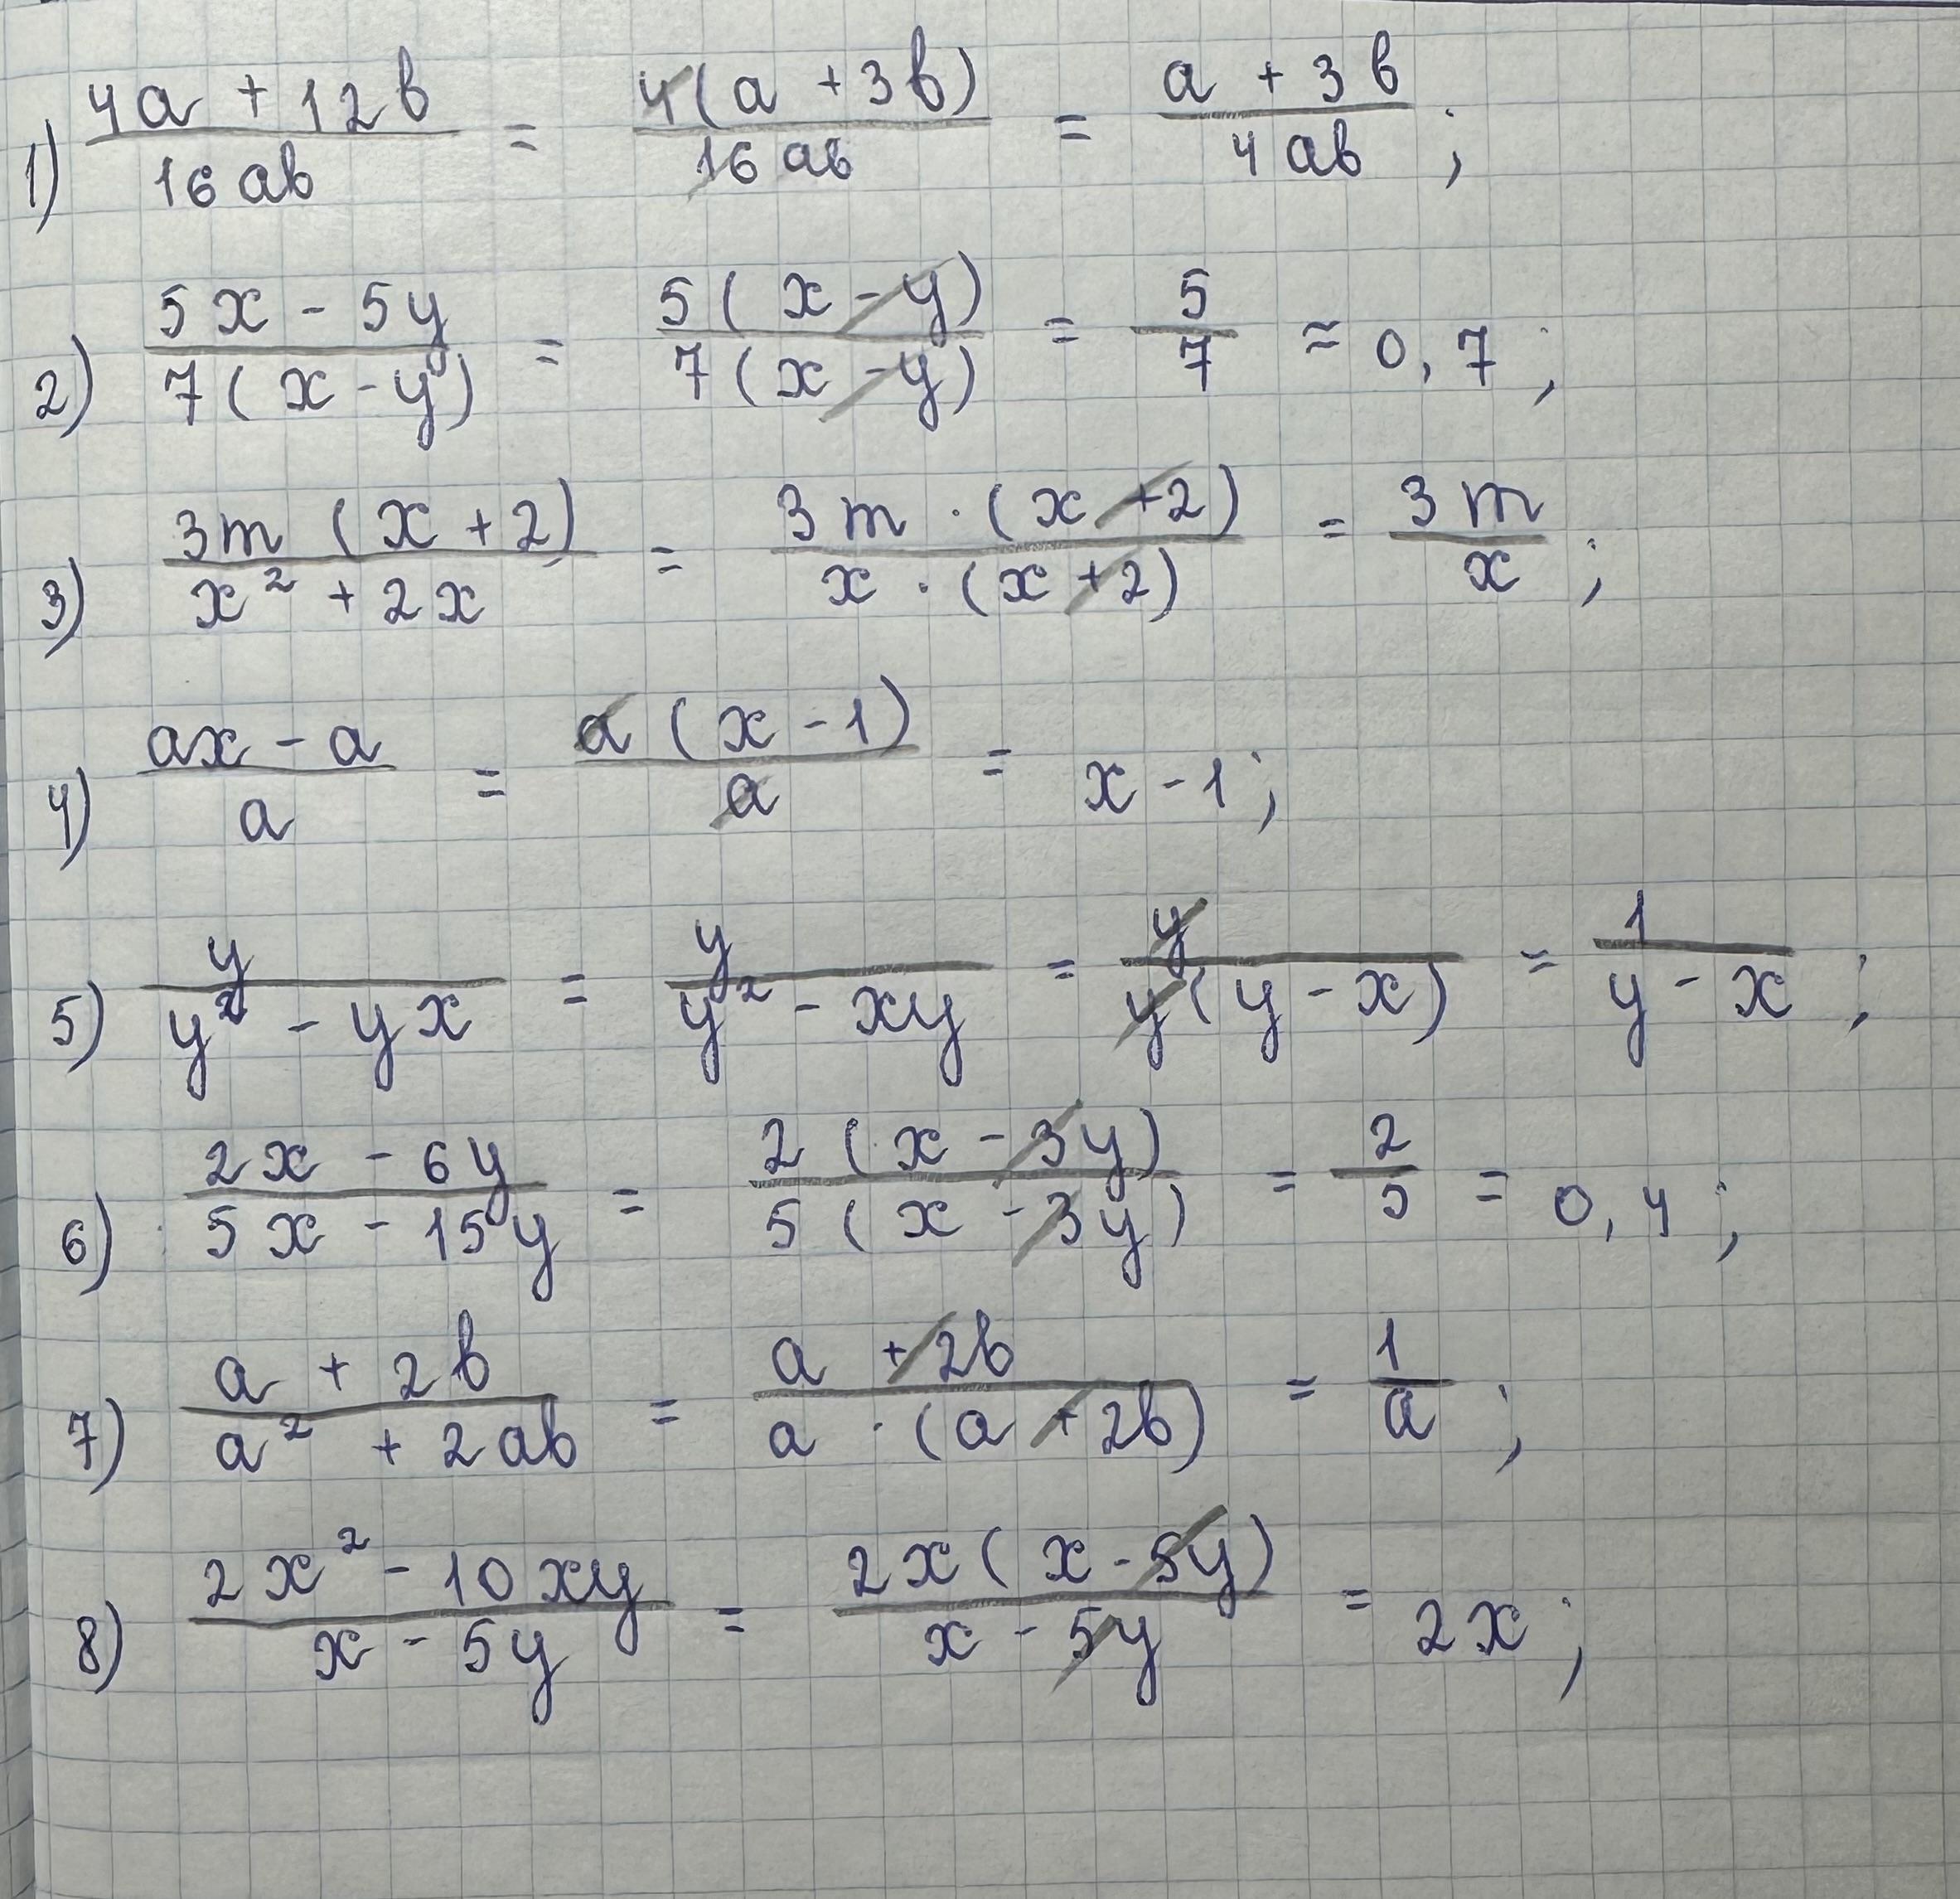 1) (4a + 12b)/(16ab) = (4(a + 3b))/(16ab) = (a + 3b)/(4ab);
2) (5x - 5y)/(7(x - y)) = (5(x - y))/(7(x - y)) = 5/7 ≈ 0,7;
3) (3m (x + 2))/(x² + 2x) = (3m · (x + 2))/(x · (x + 2)) = (3m)/x;
4) (ax - a)/a = (a (x - 1))/a = x - 1;
5) y/(y² - yx) = y/(y² - xy) = y/(y(y - x)) = 1/(y - x);
6) (2x - 6y)/(5x - 15y) = (2(x - 3y))/(5(x - 3y)) = 2/5 = 0,4;
7) (a + 2b)/(a² + 2ab) = (a + 2b)/(a · (a + 2b)) = 1/a;
8) (2x² - 10xy)/(x - 5y) = (2x(x - 5y))/(x - 5y) = 2x;